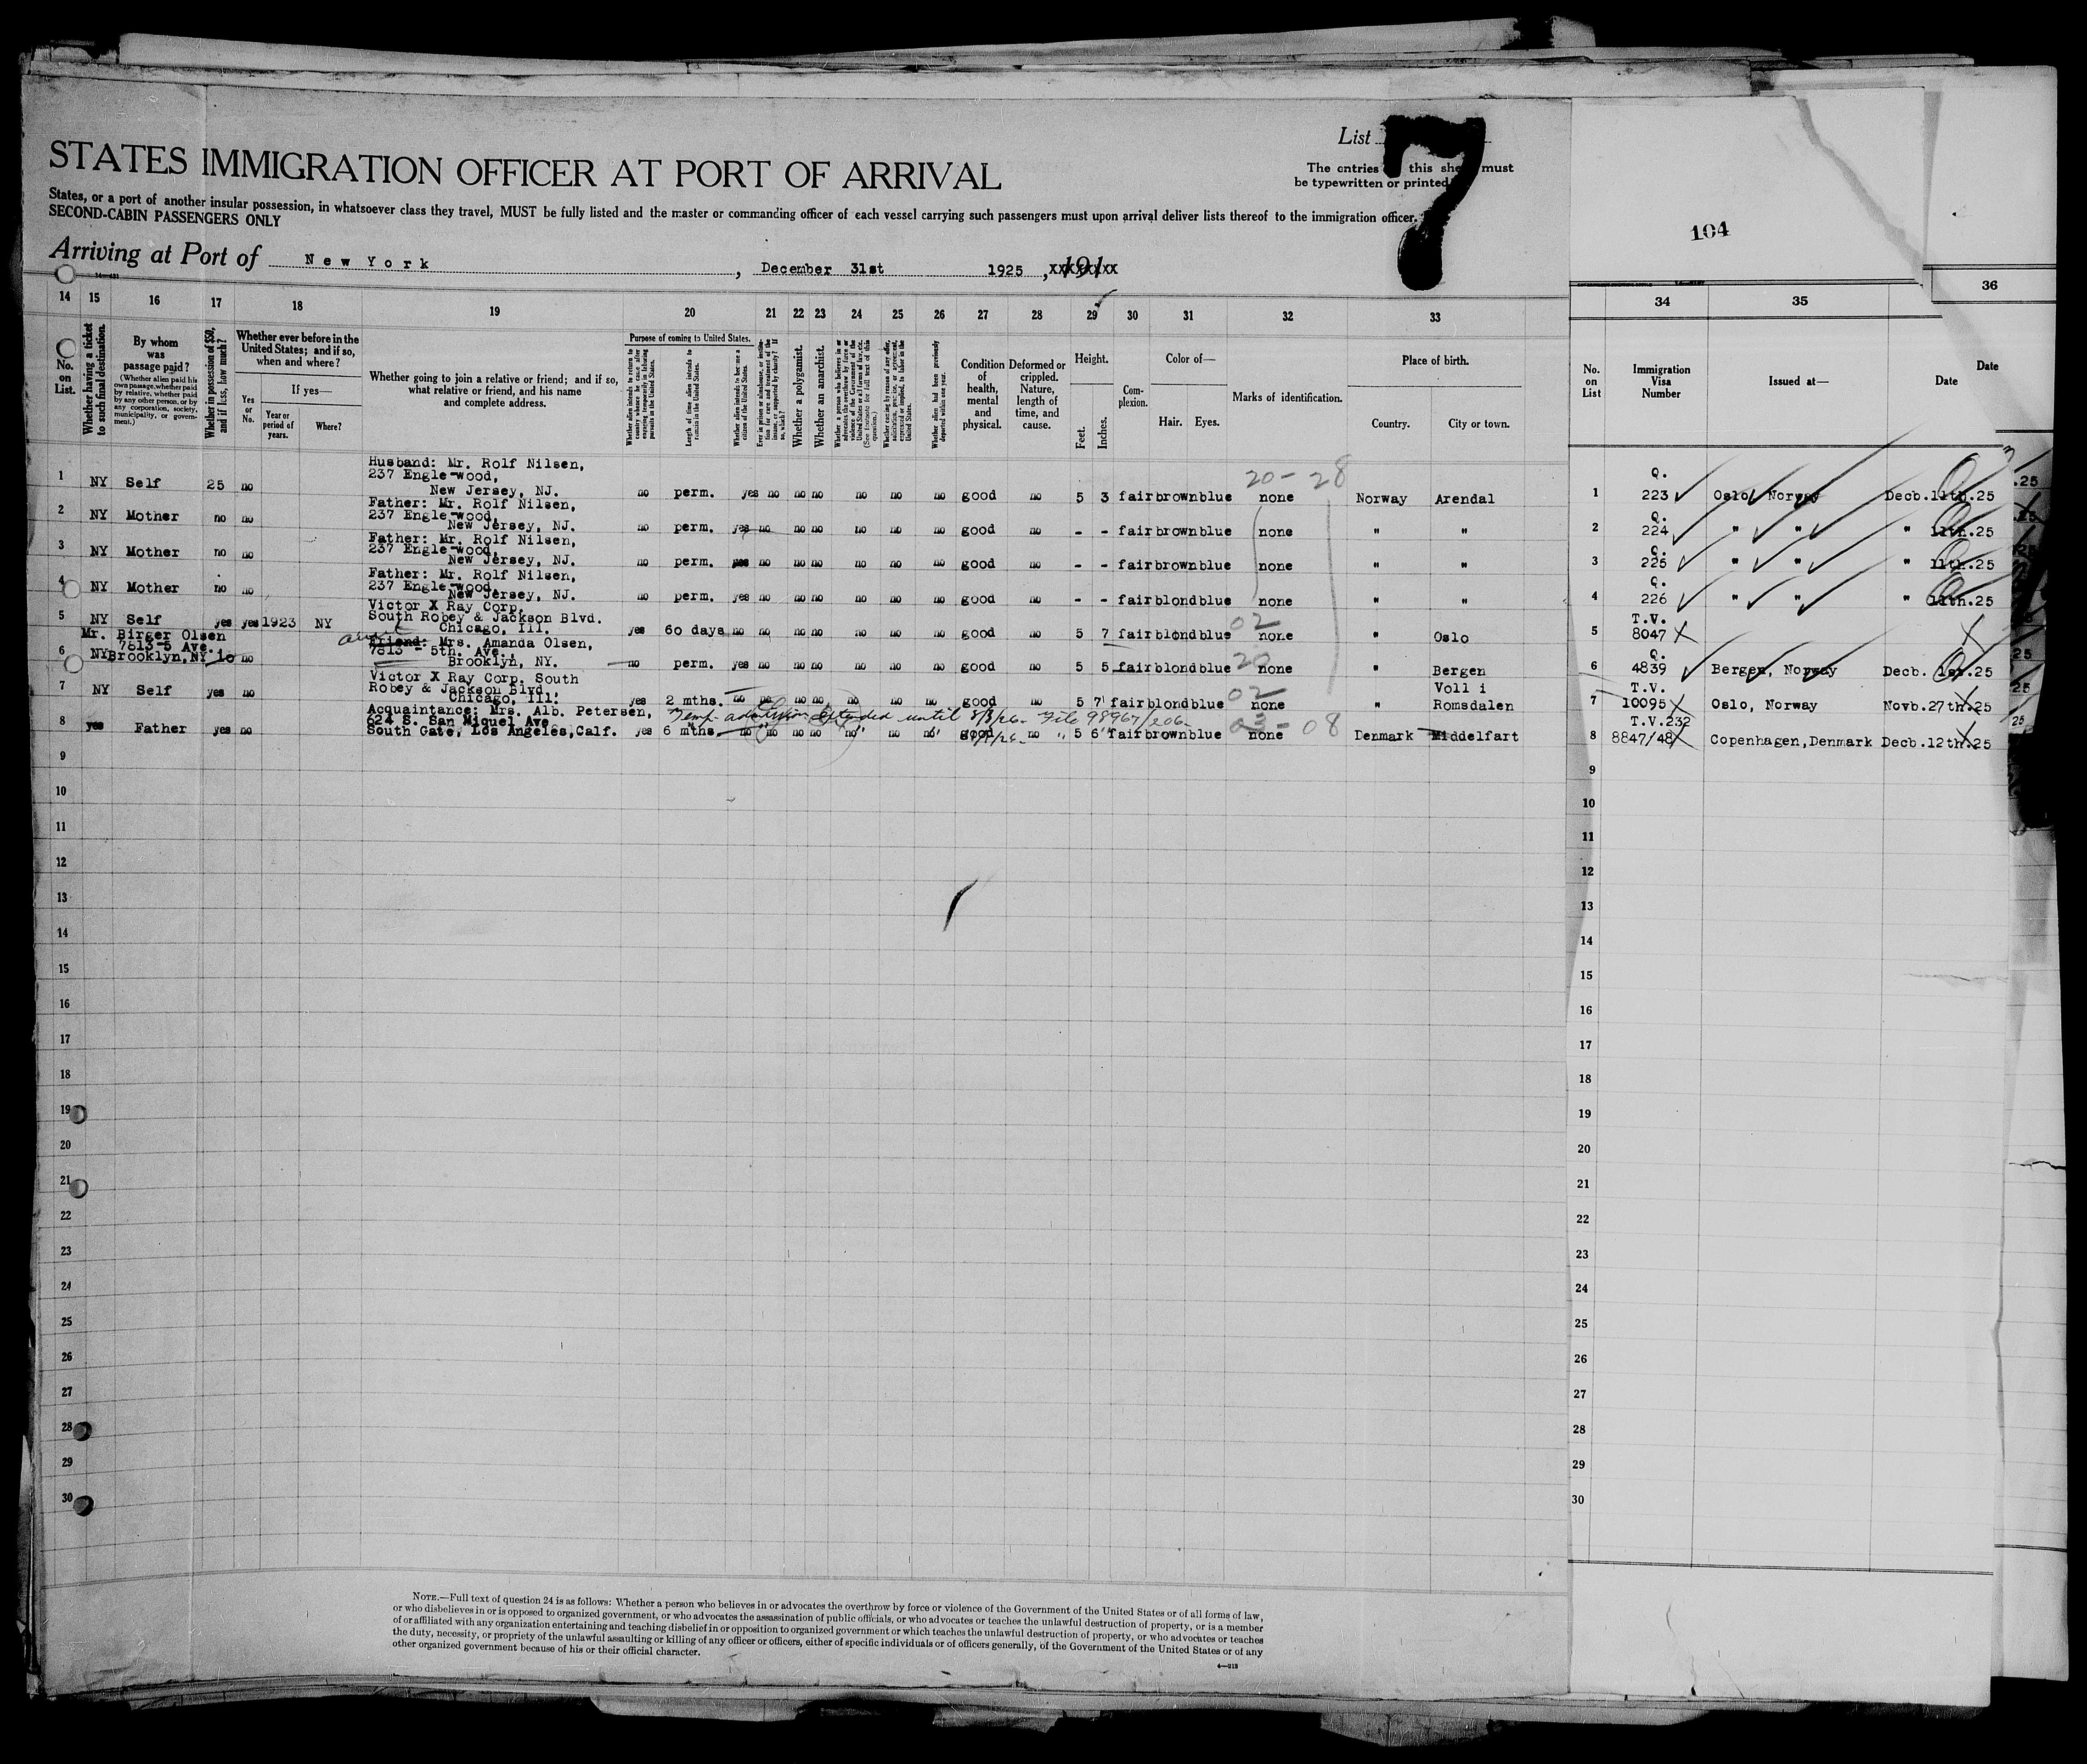 List 7
STATES IMMIGRATION OFFICER AT PORT OF ARRIVAL
The entries this she must
be typewritten or printed
States, or a port of another insular possession, in whatsoever class they travel, MUST be fully listed and the master or commanding officer of each vessel carrying such passengers must upon arrival deliver lists thereof to the immigration officer.
SECOND-CABIN PASSENGERS ONLY
104
Arriving at Port of New York, December 31st 1925
14 15 16 17 18 19 20 21 22 23 24 25 26 27 28 29 30 31 32 33 34 35 36
No. on List.
Whether having a ticket to such final destination.
By whom was passage paid?
(Whether alien paid his own passage, whether paid by relative, whether paid by any other person, or by any corporation, society, municipality, or government.)
Whether in possession of $50, and if less, how much?
Whether ever before in the United States; and if so, when and where?
Yes or No.
If yes—
Year or period of years.
Where?
Whether going to join a relative or friend; and if so, what relative or friend, and his name and complete address.
Purpose of coming to United States.
Length of time alien intends to remain in the United States.
Whether a polygamist.
Whether an anarchist.
Condition of health, mental and physical.
Deformed or crippled. Nature, length of time, and cause.
Height.
Feet. Inches.
Complexion.
Color of—
Hair. Eyes.
Marks of identification.
Place of birth.
Country. City or town.
No. on List
Immigration Visa Number
Issued at—
Date
Date
20-28
1 NY Self 25 no Husband: Mr. Rolf Nilsen, 237 Engle-wood, New Jersey, NJ. no perm. yes no no no no no no good no 5 3 fair brown blue none Norway Arendal 1 Q. 223 Oslo, Norway Decb. 11th.25
2 NY Mother no no Father: Mr. Rolf Nilsen, 237 Engle-wood, New Jersey, NJ. no perm. yes no no no no no no good no - - fair brown blue none " " 2 Q. 224 " " " 11th.25
3 NY Mother no no Father: Mr. Rolf Nilsen, 237 Engle-wood, New Jersey, NJ. no perm. yes no no no no no no good no - - fair brown blue none " " 3 Q. 225 " " " 11th.25
4 NY Mother no no Father: Mr. Rolf Nilsen, 237 Engle-wood, New Jersey, NJ. no perm. yes no no no no no no good no - - fair blond blue none " " 4 Q. 226 " " " 11th.25
5 NY Self yes yes 1923 NY Victor X Ray Corp. South Robey & Jackson Blvd. Chicago, Ill. yes 60 days no no no no no no no good no 5 7 fair blond blue 02 none " Oslo 5 T.V. 8047
6 NY Mr. Birger Olsen 7813-5 Ave. Brooklyn, NY 10 no aunt Friend: Mrs. Amanda Olsen, 7813 - 5th. Ave., Brooklyn, NY. no perm. yes no no no no no no good no 5 5 fair blond blue 20 none " Bergen 6 Q. 4839 Bergen, Norway Decb. 1st.25
7 NY Self yes no Victor X Ray Corp. South Robey & Jackson Blvd., Chicago, Ill. yes 2 mths. no no no no no no no good no 5 7 fair blond blue 02 none " Voll i Romsdalen 7 T.V. 10095 Oslo, Norway Novb. 27th.25
Temp. admission extended until 8/3/26 File 98967/206
8 yes Father yes no Acquaintance: Mrs. Alb. Petersen, 624 S. San Miquel Ave. South Gate, Los Angeles, Calf. yes 6 mths. no no no no no no no good no 5 6 fair brown blue 03-08 none Denmark Middelfart 8 T.V.232 8847/48 Copenhagen, Denmark Decb. 12th.25
9 9
10 10
11 11
12 12
13 13
14 14
15 15
16 16
17 17
18 18
19 19
20 20
21 21
22 22
23 23
24 24
25 25
26 26
27 27
28 28
29 29
30 30
NOTE.—Full text of question 24 is as follows: Whether a person who believes in or advocates the overthrow by force or violence of the Government of the United States or of all forms of law,
or who disbelieves in or is opposed to organized government, or who advocates the assassination of public officials, or who advocates or teaches the unlawful destruction of property, or is a member
of or affiliated with any organization entertaining and teaching disbelief in or opposition to organized government or which teaches the unlawful destruction of property, or who advocates or teaches
the duty, necessity, or propriety of the unlawful assaulting or killing of any officer or officers, either of specific individuals or of officers generally, of the Government of the United States or of any
other organized government because of his or their official character.